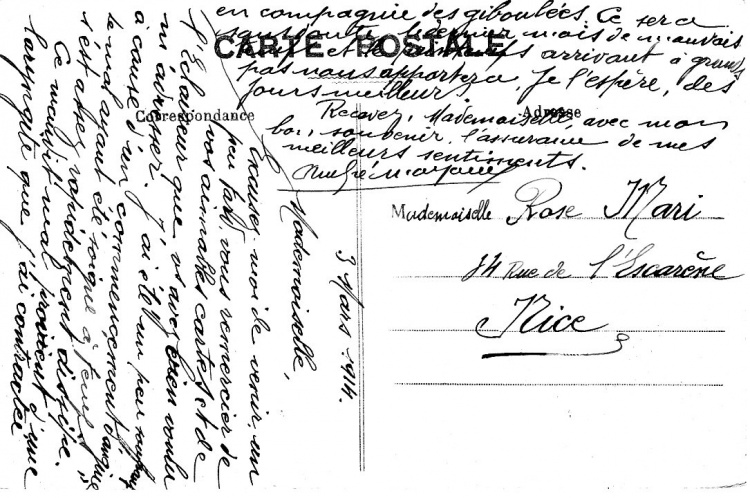 CARTE POSTALE
Correspondance
Adresse
3 Mars 1914.
Mademoiselle,
Excusez-moi de venir un
peu tard vous remercier de
vos aimables cartes et de
l'Eclaireur que vs avez bien voulu
m'adresser. J'ai été un peu
à cause d'un commencement
le mal ayant été soigné à temps
s'est assez rapidement dissipé.
Ce maudit mal provient d'une
laryngite que j'ai contractée
en compagnie des giboulées. Ce sera
mois de mauvais
et le arrivant à grands
pas nous apportera, je l'espère, des
jours meilleurs.
Recevez, Mademoiselle, avec mon
bon souvenir, l'assurance de mes
meilleurs sentiments.
Mademoiselle Rose Mari
14 Rue de l'Escarène
Nice